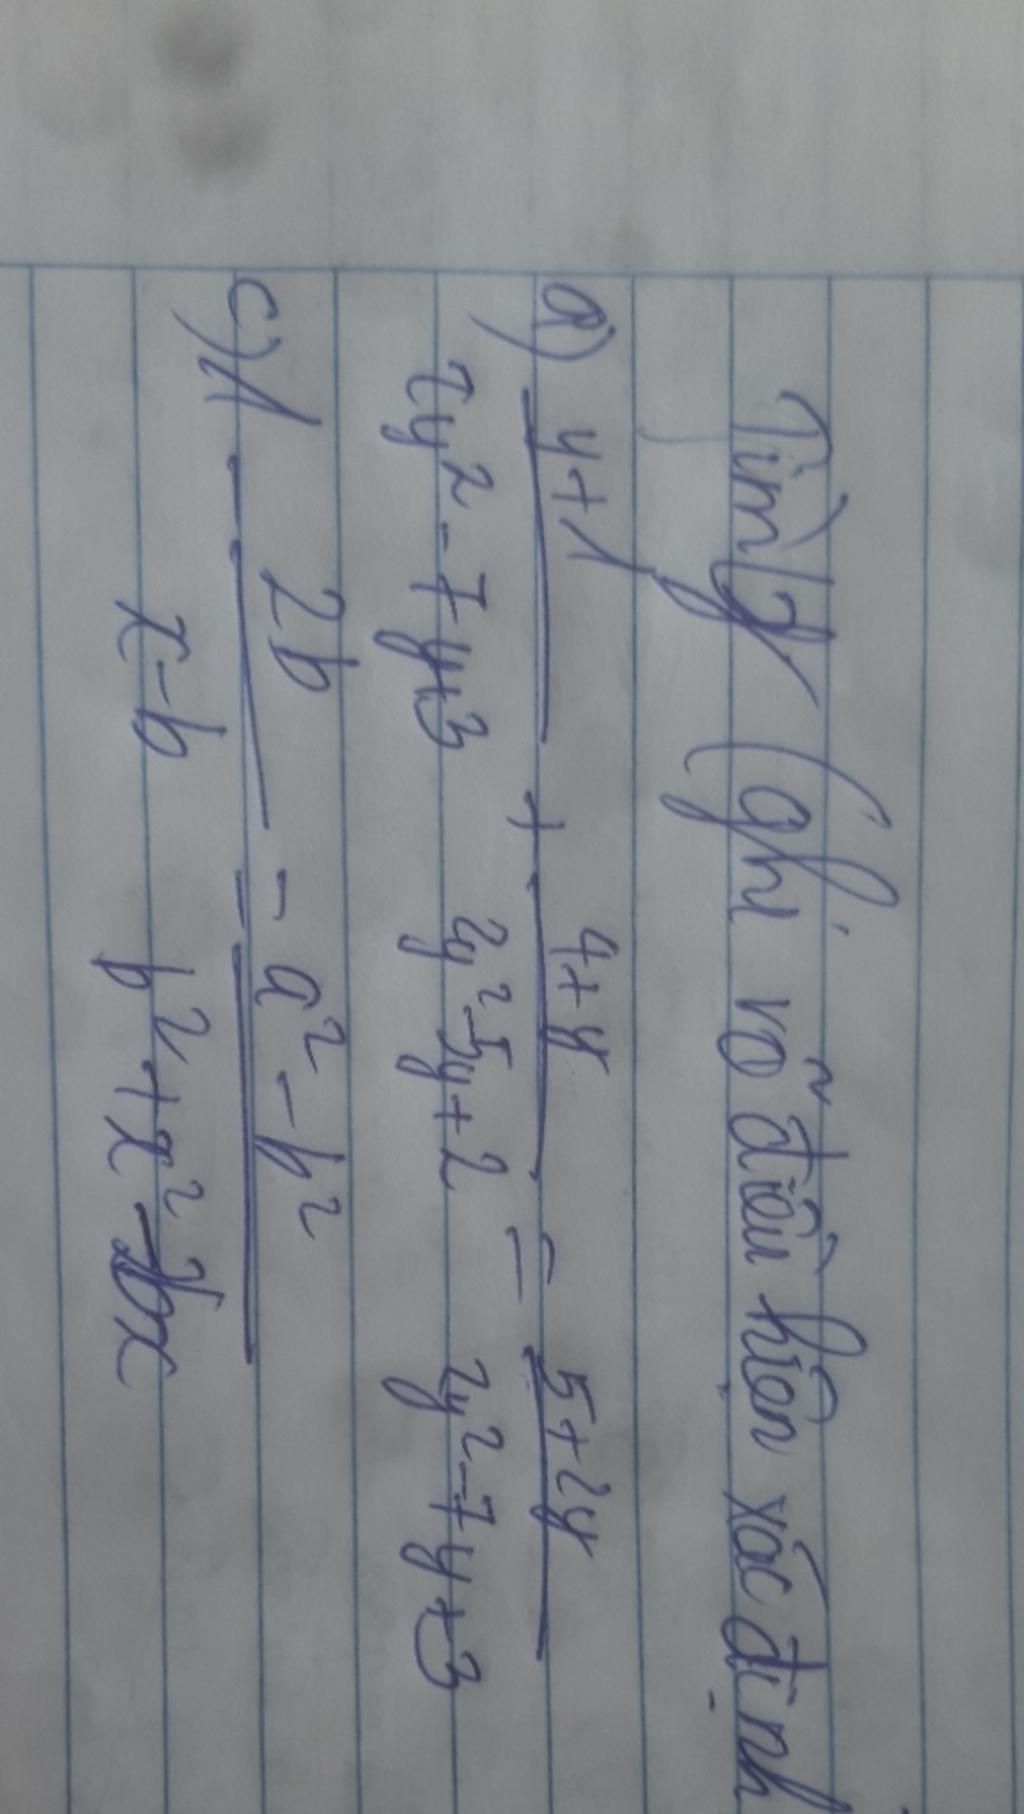 Tìm y (ghi rõ điều kiện xác định
a) y+1 / 2y² - 7y+3 + 4+y / 2y²-5y+2 = 5+2y / 2y²-7y+3
c) 1 - 2b / x-b = a² - b² / b² + x² - 2bx